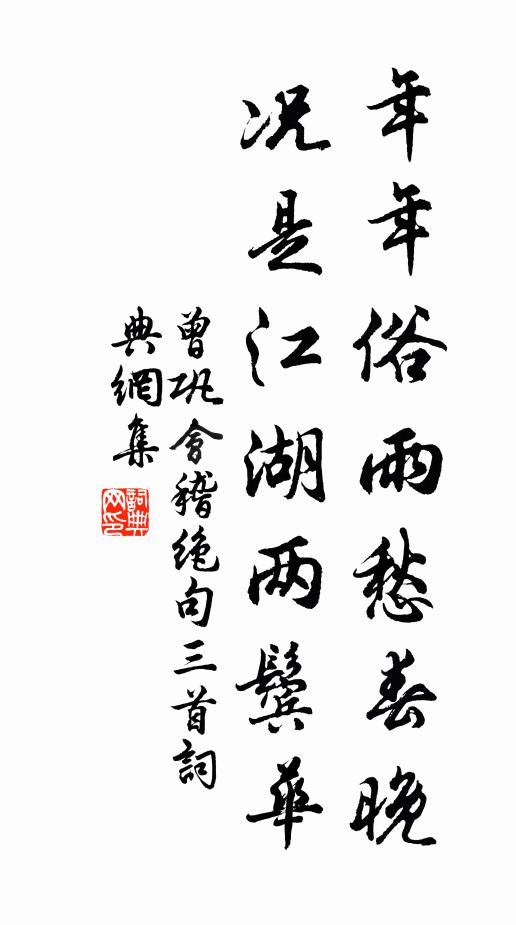 年年俗雨愁春晚
况是江湖两鬓華
曾巩會稽绝句三首詞
典網集
詞典网印